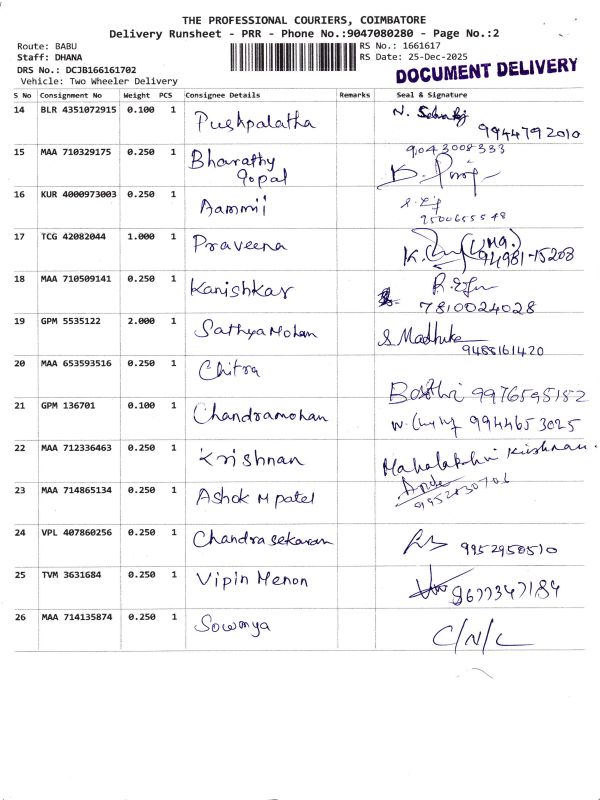 THE PROFESSIONAL COURIERS, COIMBATORE
Delivery Runsheet - PRR - Phone No.:9047080280 - Page No.:2
Route: BABU RS No.: 1661617
Staff: DHANA RS Date: 25-Dec-2025
DRS No.: DCJB166161702
Vehicle: Two Wheeler Delivery
DOCUMENT DELIVERY
S No Consignment No Weight PCS Consignee Details Remarks Seal & Signature
14 BLR 4351072915 0.100 1 Pushpalatha N. 9944792010
15 MAA 710329175 0.250 1 Bharathy gopal 9043008333
16 KUR 4000973003 0.250 1 Aammii
17 TCG 42082044 1.000 1 Praveena 94981-15208
18 MAA 710509141 0.250 1 Kanishkar 7810024028
19 GPM 5535122 2.000 1 Sathya Mohan S Madhuka 9488161420
20 MAA 653593516 0.250 1 Chitra 9976595182
21 GPM 136701 0.100 1 Chandramohan 9944653025
22 MAA 712336463 0.250 1 Krishnan Mahalakshmi Krishnan.
23 MAA 714865134 0.250 1 Ashok M patel
24 VPL 407860256 0.250 1 Chandrasekaran 9952950510
25 TVM 3631684 0.250 1 Vipin Menon 9677347184
26 MAA 714135874 0.250 1 Sowmya C/N/L